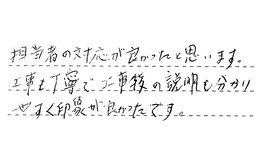 担当者の対応が良かったと思います。
工事も丁寧で工事後の説明も分かり
やすく印象が良かったです。